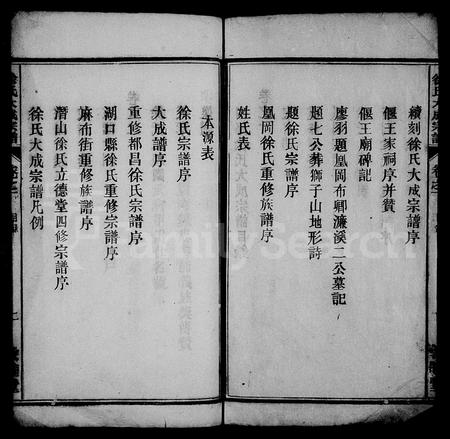 續刻徐氏大成宗譜序
偃王家祠序并贊
偃王廟碑記
廖羽題凰岡布卿濂溪二公墓記
題七公葬獅子山地形詩
題徐氏宗譜序
凰岡徐氏宗譜序
姓氏表
本源表
徐氏宗譜序
大成譜序
重修都昌徐氏宗譜序
湖口縣徐氏重修宗譜序
麻布街重修族譜序
潛山徐氏立德堂四修宗譜序
徐氏大成宗譜凡例
徐氏大成宗譜
FamilySearch